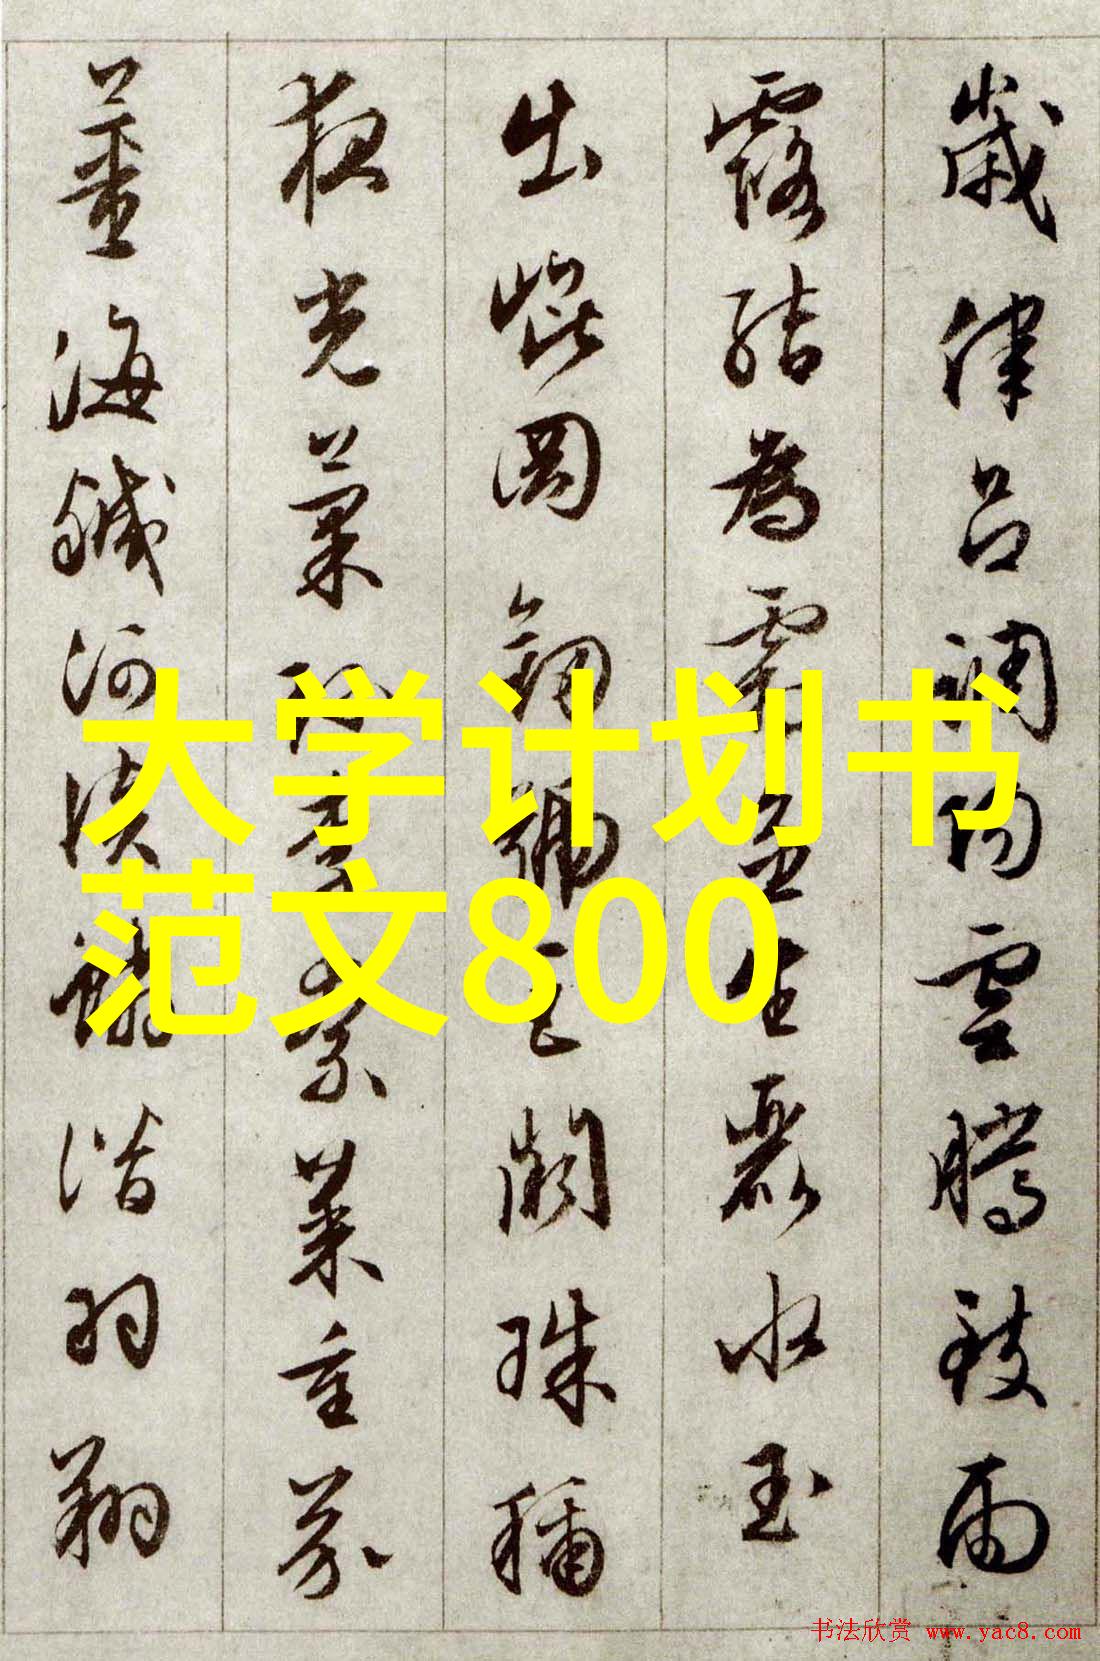 歲律呂調陽雲騰致雨
露結為霜金生麗水玉
出崐岡劍號巨闕珠稱
夜光菓珍李柰菜重芥
薑海鹹河淡鱗潛羽翔
大学计划书
范文800
书法欣赏 www.yac8.com